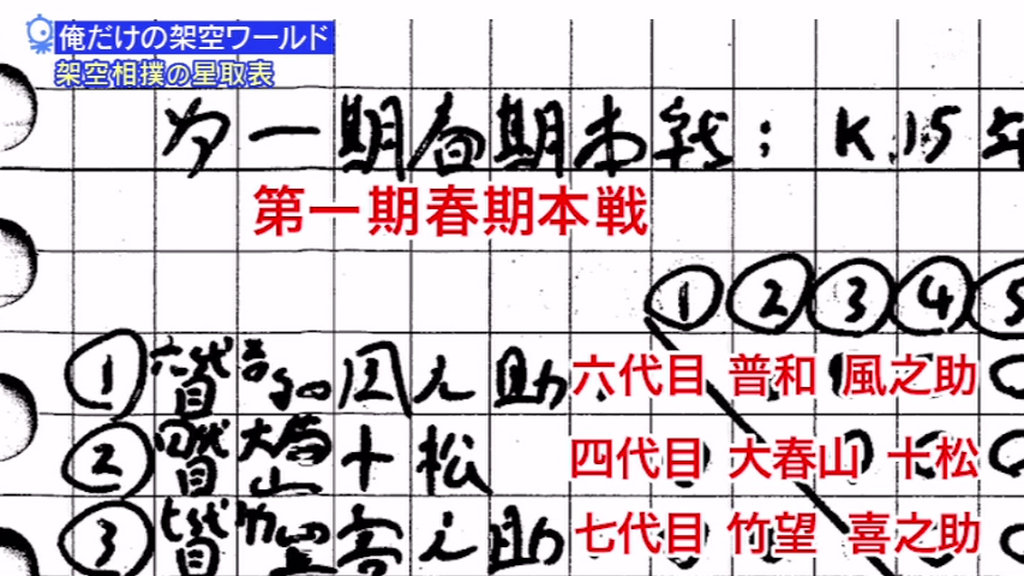 俺だけの架空ワールド
架空相撲の星取表
第一期春期本戦:K.15年
第一期春期本戦
① ② ③ ④ 5
① 六代目 普和 風之助 六代目 普和 風之助
② 四代目 大春山 十松 四代目 大春山 十松
③ 七代目 竹望 喜之助 七代目 竹望 喜之助